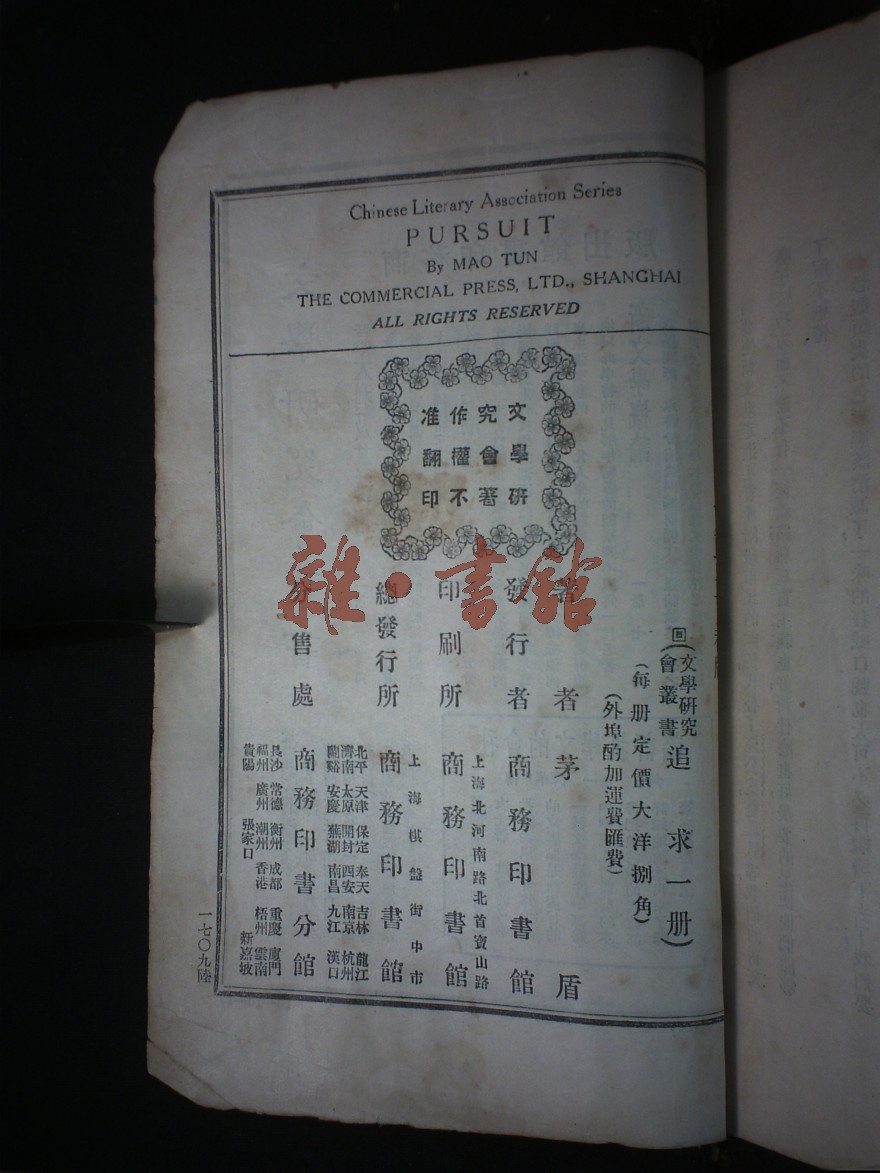 Chinese Literary Association Series
PURSUIT
By MAO TUN
THE COMMERCIAL PRESS, LTD., SHANGHAI
ALL RIGHTS RESERVED
文學研
究會著
作權不
准翻印
回(文學研究會叢書追求一册)
(每册定價大洋捌角)
(外埠酌加運費匯費)
著者 茅盾
發行者 商務印書館
上海北河南路北首寶山路
印刷所 商務印書館
上海棋盤街中市
總發行所 商務印書館
北平 天津 保定 奉天 吉林 龍江
濟南 太原 開封 西安 南京 杭州
蘭谿 安慶 蕪湖 南昌 九江 漢口
分售處 商務印書分館
長沙 常德 衡州 成都 重慶 廈門
福州 廣州 潮州 香港 梧州 雲南
貴陽 張家口 新嘉坡
一七〇九陸
雜·書館